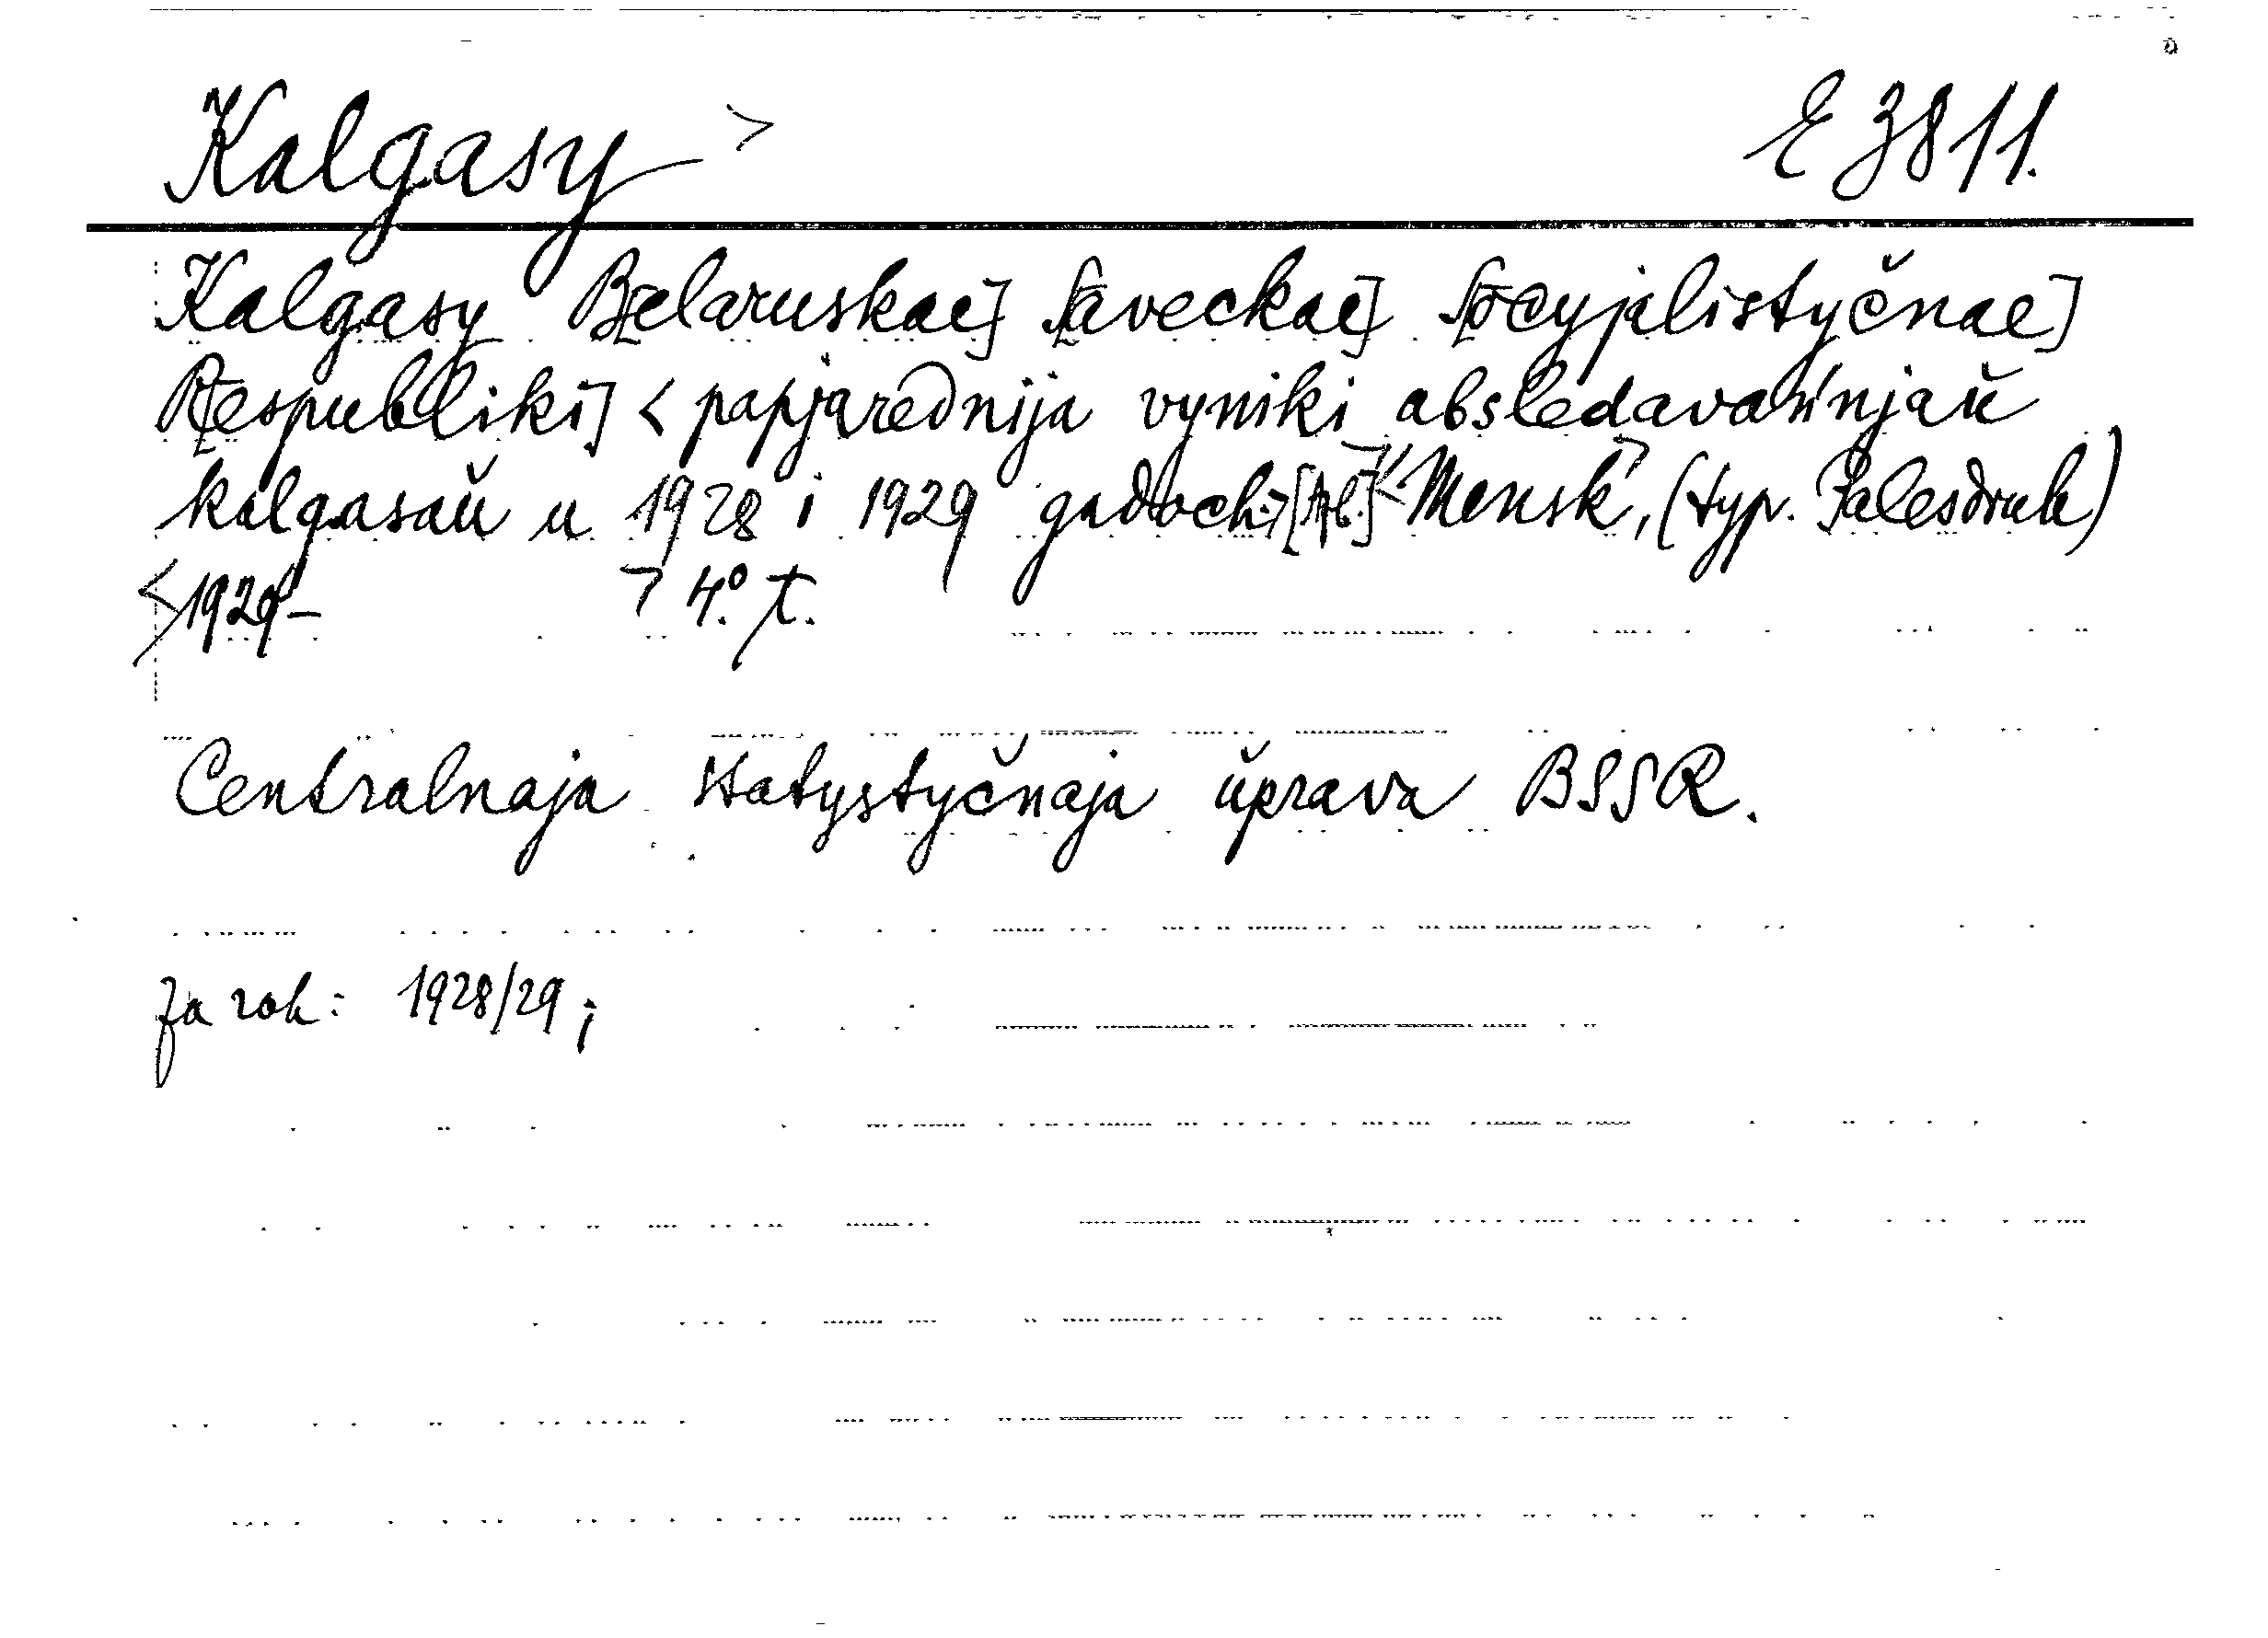 Kalgasy > E 3811.
Kalgasy B[elaruskae] S[aveckae] S[ocyjalistyčnae]
R[espubliki] < papjarednija vyniki absledavańnjaŭ
kalgasaŭ u 1928 i 1929 gadoch.> <Mensk>, (typ. Palesdruk)
<1929- > 4.° t.
Centralnaja statystyčnaja ŭprava BSSR.
Za rok: 1928/29;